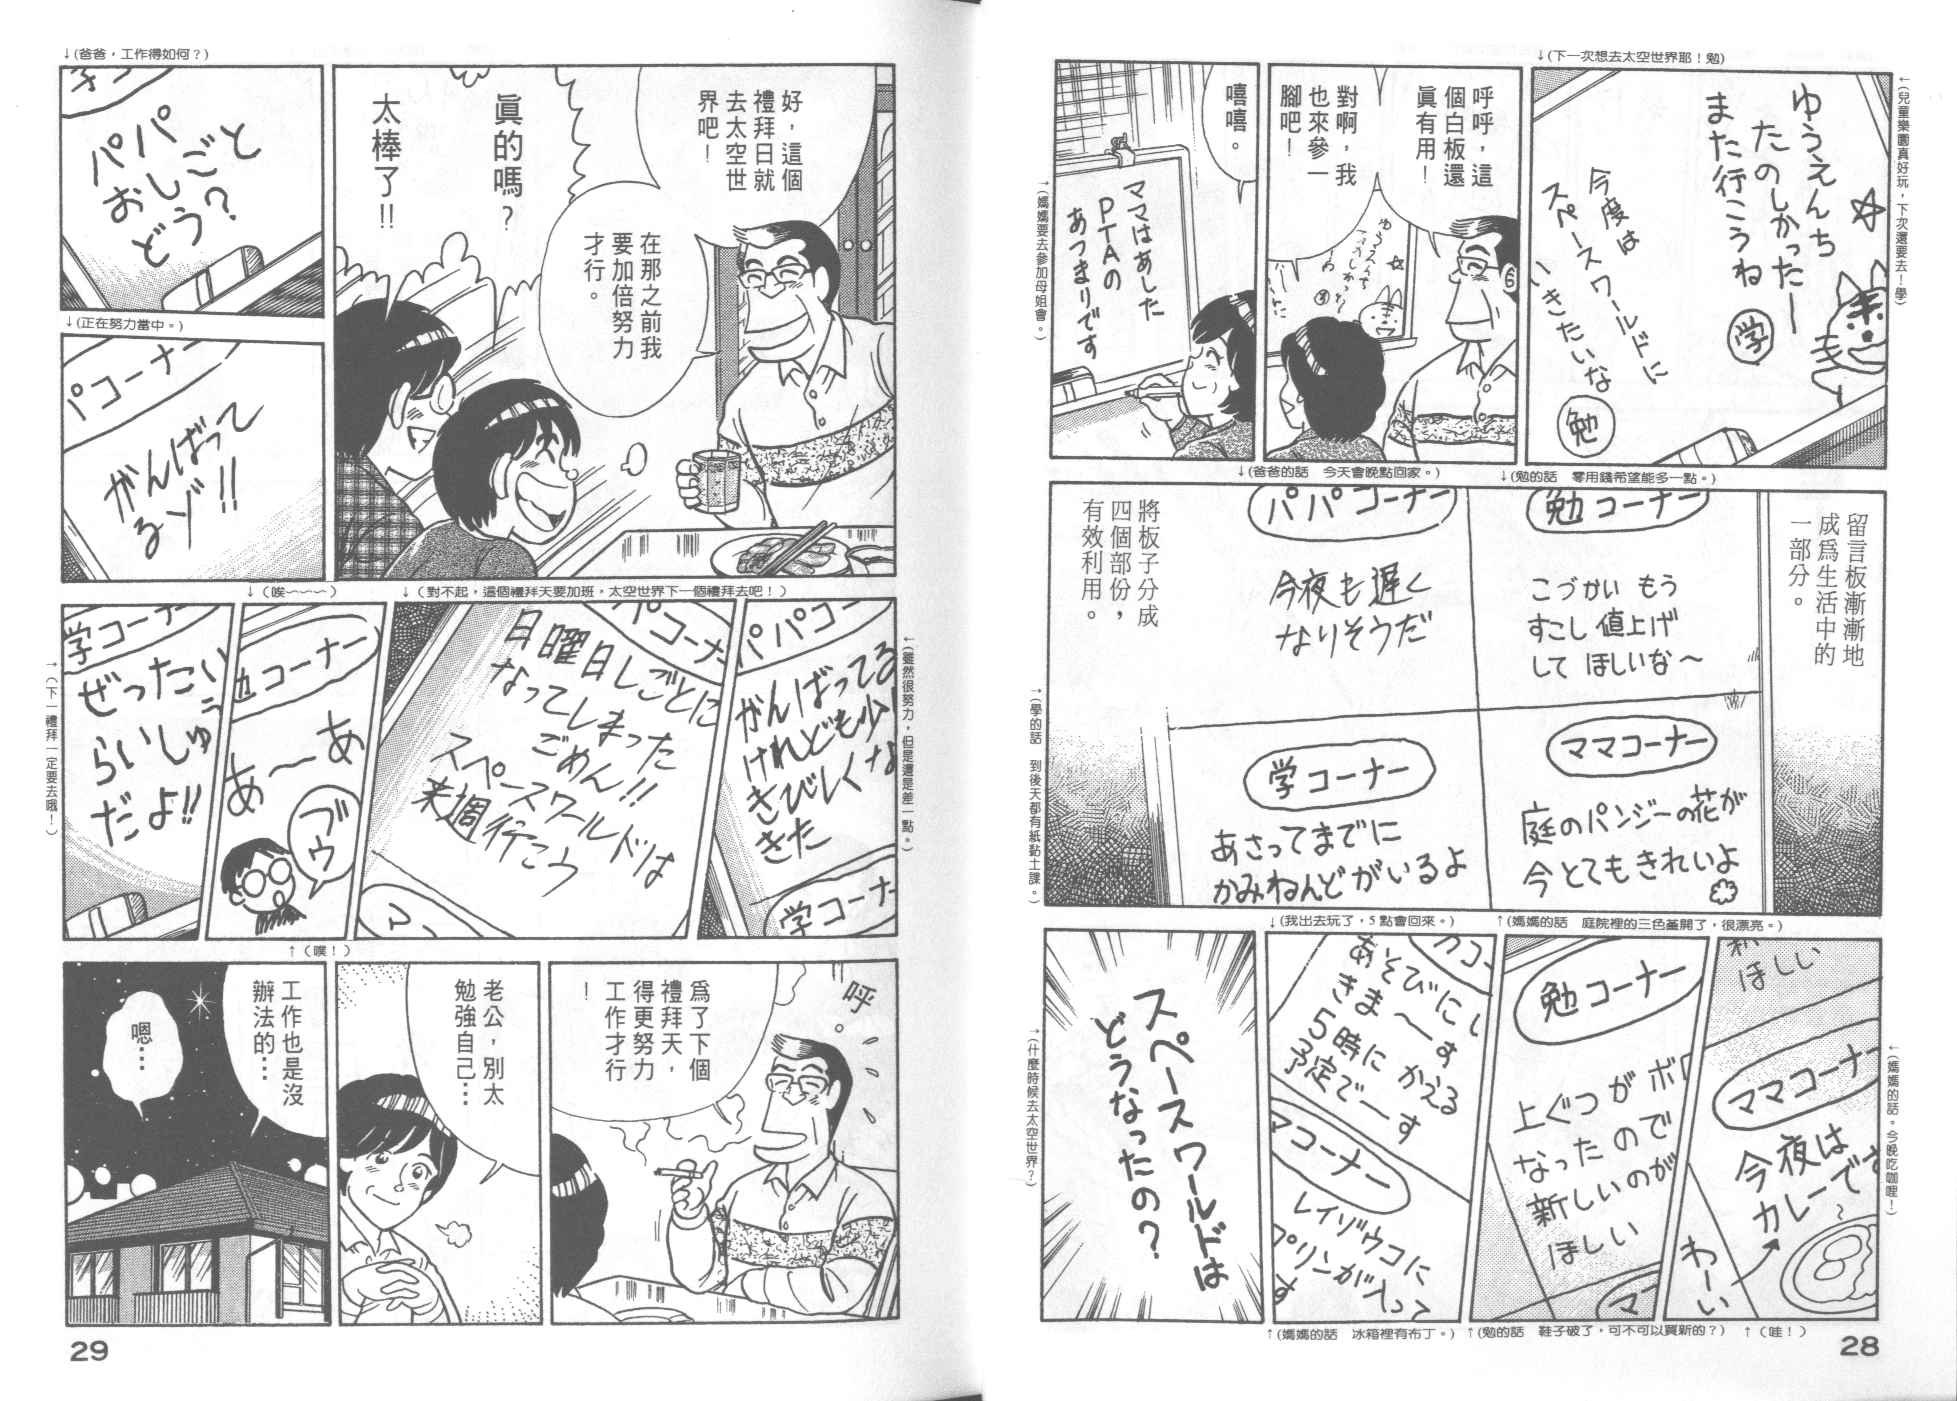 ↓(下一次想去太空世界耶！勉)
←(兒童樂園真好玩，下次還要去！學)
ゆうえんち
たのしかったー
また行こうね
学
今度は
スペースワールドに
いきたいな
勉
呼呼，這
個白板還
眞有用！
對啊，我
也來參一
腳吧！
嘻嘻。
ママはあした
PTAの
あつまりです
→(媽媽要去參加母姐會。)
↓(勉的話　零用錢希望能多一點。)
↓(爸爸的話　今天會晚點回家。)
留言板漸漸地
成爲生活中的
一部分。
勉コーナー
こづかい もう
すこし 値上げ
して ほしいな〜
パパコーナー
今夜も遅く
なりそうだ
將板子分成
四個部份，
有效利用。
ママコーナー
庭のパンジーの花が
今とてもきれいよ
学コーナー
あさってまでに
かみねんどがいるよ
→(學的話　到後天都有紙黏土課。)
↑(媽媽的話　庭院裡的三色菫開了，很漂亮。)
↓(我出去玩了，5點會回來。)
←(媽媽的話。今晚吃咖哩！)
ほしい
ママコーナー
今夜は
カレーで
わーい
↑（哇！）
勉コーナー
上ぐつがボ
なったので
新しいのが
ほしい
マ
↑(勉的話　鞋子破了，可不可以買新的？)
あそびに
きま〜す
5時に かえる
予定でーす
マコーナー
レイゾウコに
プリンがはいって
↑(媽媽的話　冰箱裡有布丁。)
スペースワールドは
どうなったの？
→(什麼時候去太空世界？)
28
好，這個
禮拜日就
去太空世
界吧！
在那之前我
要加倍努力
才行。
眞的嗎？
太棒了!!
↓(爸爸，工作得如何？)
パパ
おしごと
どう？
↓(正在努力當中。)
パコーナー
がんばって
るゾ!!
←(雖然很努力，但是還是差一點。)
パパコー
がんばってる
けれども少し
きびしくな
きた
学コーナ
↓（對不起，這個禮拜天要加班，太空世界下一個禮拜去吧！）
パコーナ
日曜日しごとに
なってしまった
ごめん!!
スペースワールドは
来週行こう
マ
↓（唉~~~）
勉コーナー
あ〜あ
ブウ
↑（噗！）
学コーナー
ぜったい
らいしゅ
だよ!!
→（下一禮拜一定要去哦！）
呼。
爲了下個
禮拜天，
得更努力
工作才行
！
老公，別太
勉強自己…
工作也是沒
辦法的…
嗯…
29